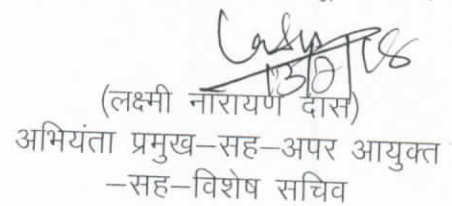 (लक्ष्मी नारायण दास)
अभियंता प्रमुख–सह–अपर आयुक्त
–सह–विशेष सचिव